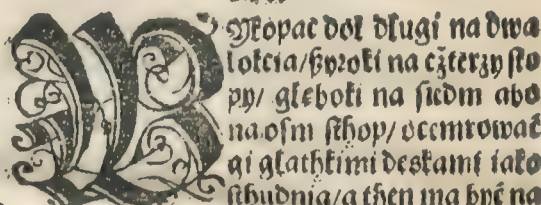 WYkopać doł długi na dwa
łokcia/ szyroki na cżterzy sto
py/ głęboki na siedm abo
na ośm sthop/ ocemrować
gi gładkimi deskami iako
sthudnią/ a then ma być na